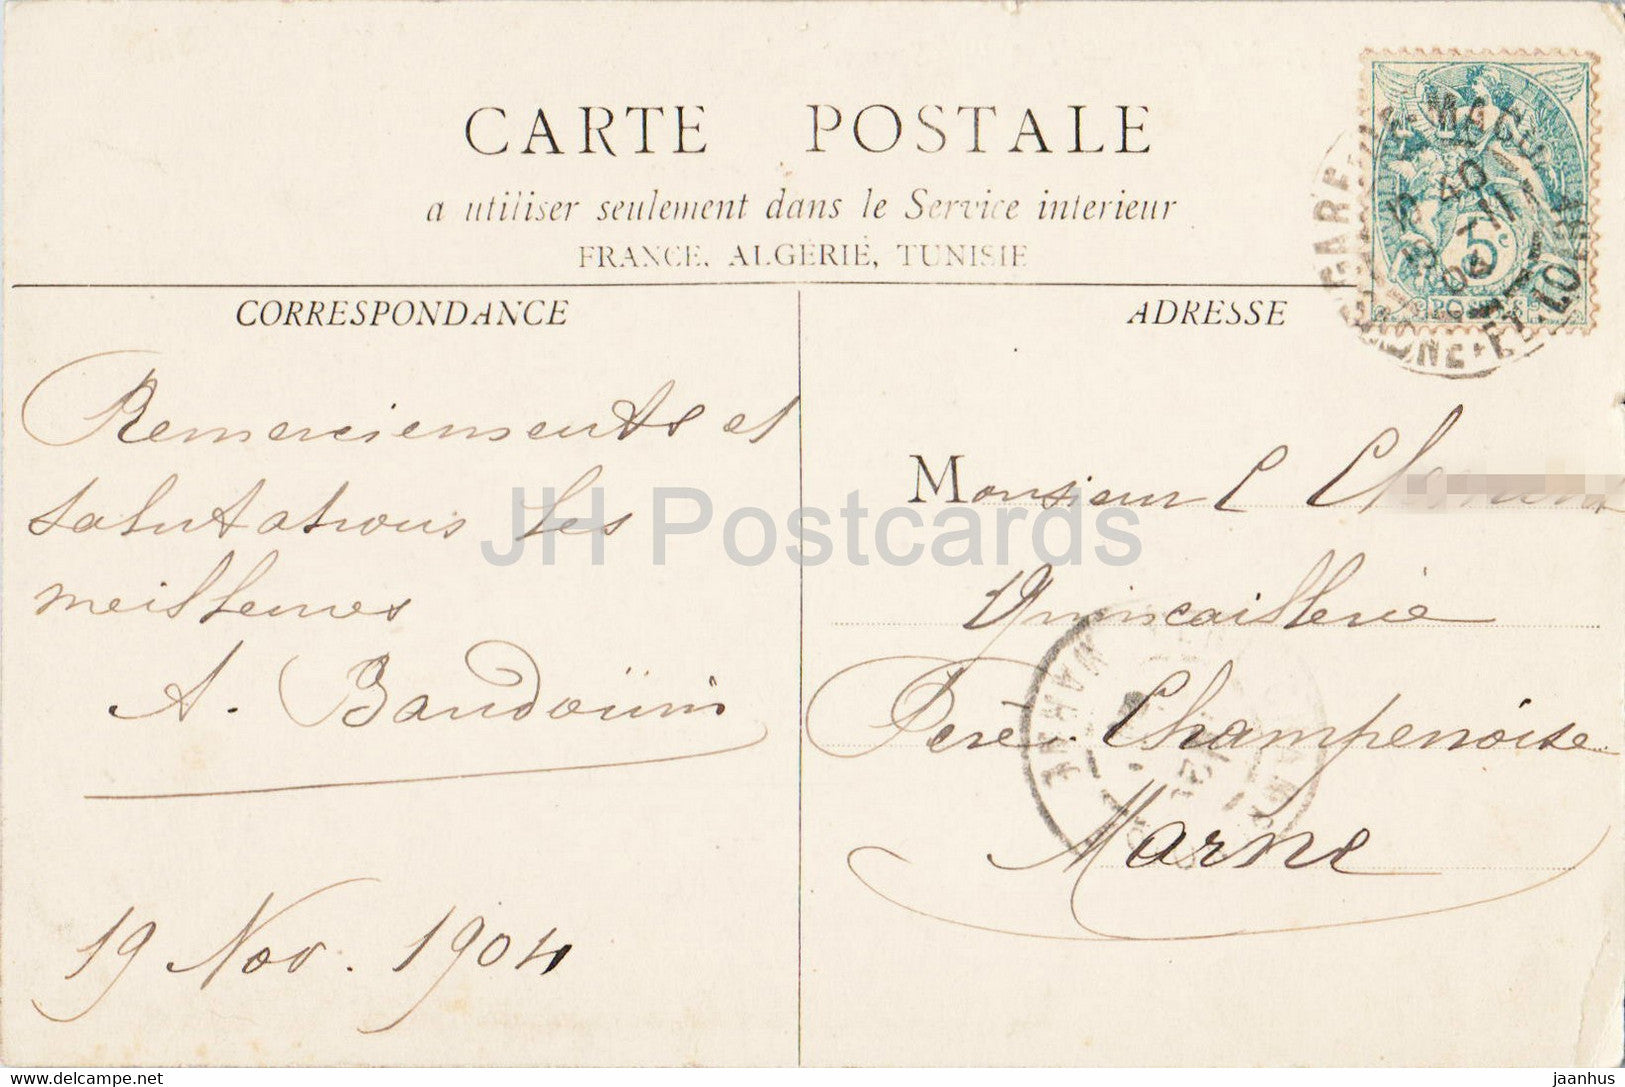 CARTE POSTALE
a utiliser seulement dans le Service interieur
FRANCE, ALGÉRIE, TUNISIE
CORRESPONDANCE
ADRESSE
5c
POSTES
Remerciements et
salutations les
meilleures
A. Baudoüin
19 Nov. 1904
Monsieur C
Quincaillerie
Fère-Champenoise
Marne
MARNE
JH Postcards
www.delcampe.net
jaanhus